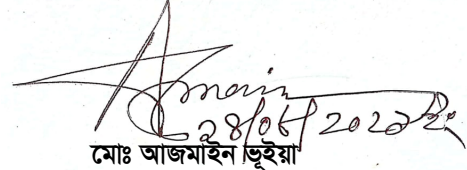 Azmain
28/06/2022ইং
মোঃ আজমাইন ভূইয়া